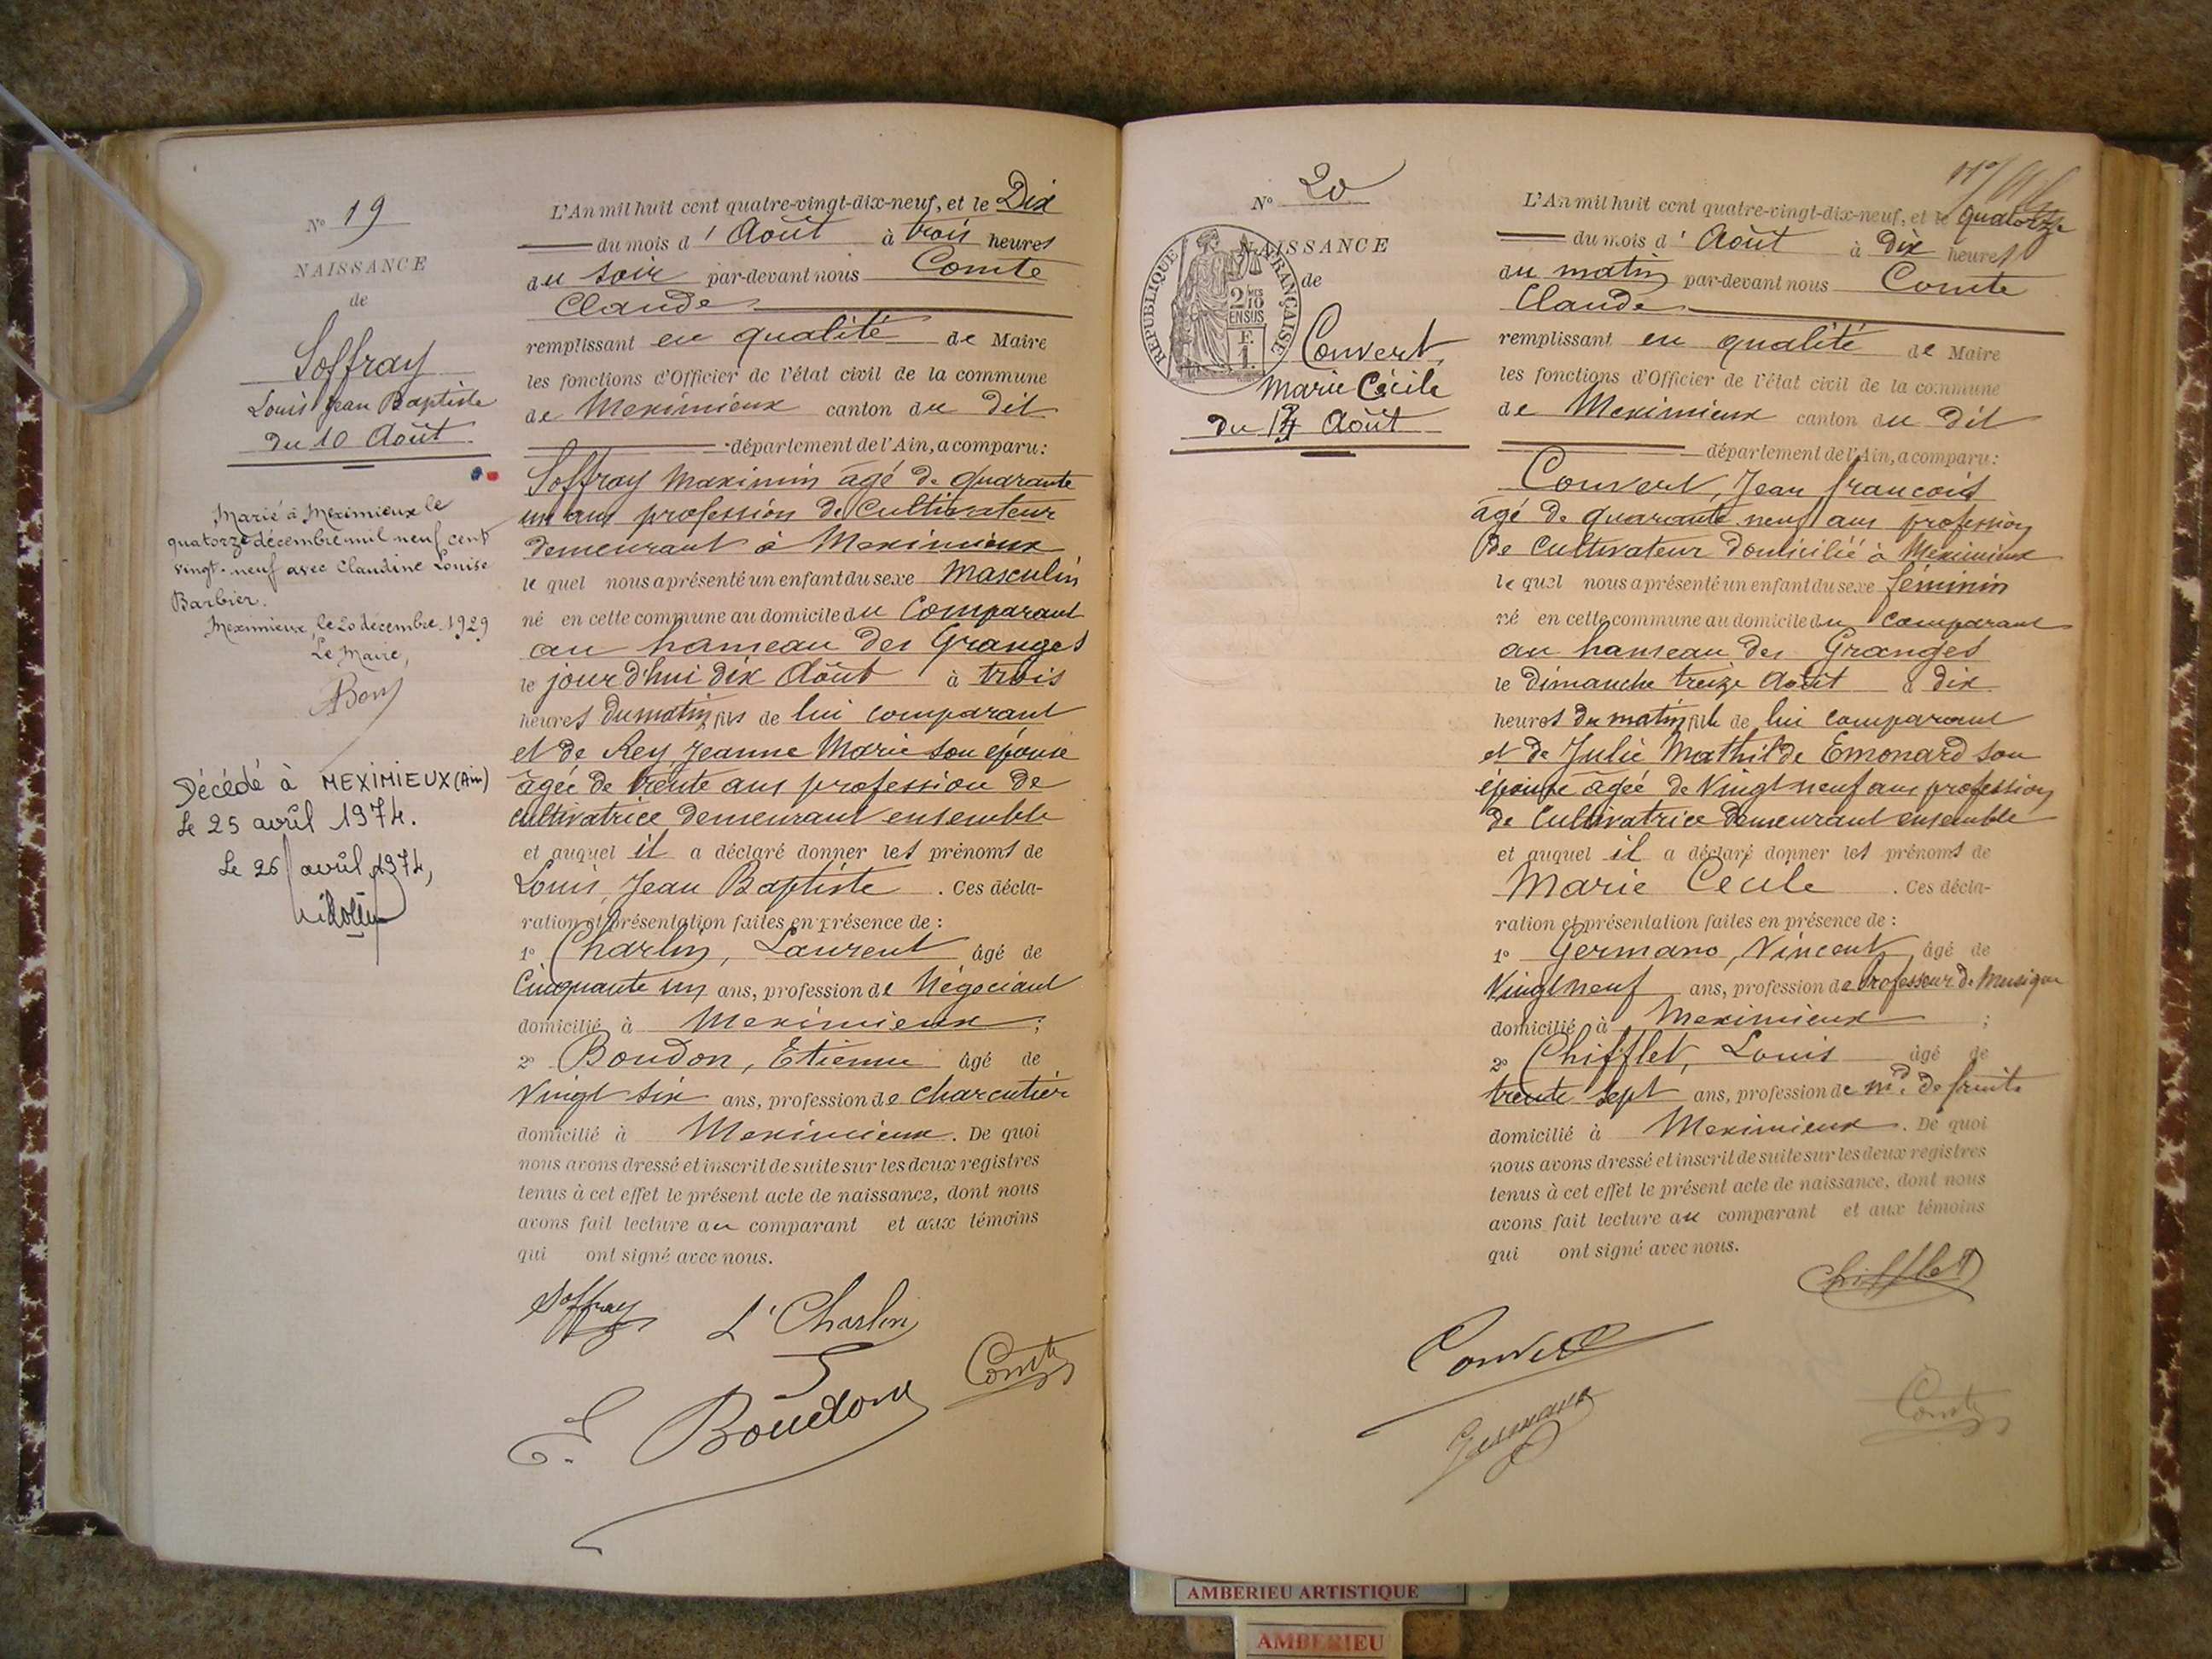 N° 19
NAISSANCE
de
Soffray
Louis Jean Baptiste
du 10 Août
Marié à Meximieux le
quatorze décembre mil neuf cent
vingt-neuf avec Claudine Louise
Barbier.
Meximieux, le 20 décembre 1929
Le Maire,
Décédé à MEXIMIEUX (Ain)
Le 25 avril 1974.
Le 26 avril 1974,
L'An mil huit cent quatre-vingt-dix-neuf, et le Dix
du mois d' Août à trois heures
du soir par-devant nous Comte
Claude
remplissant en qualité de Maire
les fonctions d'Officier de l'état civil de la commune
de Meximieux canton du dit
département de l'Ain, a comparu:
Soffray Maximin âgé de quarante
un ans profession de Cultivateur
demeurant à Meximieux
le quel nous a présenté un enfant du sexe Masculin
né en cette commune au domicile du Comparant
au hameau des Granges
le jour d'hui dix Août à trois
heures du matin, fils de lui comparant
et de Rey Jeanne Marie son épouse
âgée de trente ans profession de
cultivatrice demeurant ensemble
et auquel il a déclaré donner les prénoms de
Louis, Jean Baptiste . Ces décla-
ration et présentation faites en présence de :
1° Charlin, Laurent âgé de
Cinquante un ans, profession de Négociant
domicilié à Meximieux ;
2° Boudon, Etienne âgé de
Vingt six ans, profession de charcutier
domicilié à Meximieux. De quoi
nous avons dressé et inscrit de suite sur les deux registres
tenus à cet effet le présent acte de naissance, dont nous
avons fait lecture au comparant et aux témoins
qui ont signé avec nous.
Soffray L. Charlin
Comte
E. Boudon
N° 20
NAISSANCE
de
REPUBLIQUE FRANÇAISE
2/10 MES
EN SUS
F.
1.
Convert,
Marie Cécile
du 14 Août
L'An mil huit cent quatre-vingt-dix-neuf, et le quatorze
du mois d' Août à Dix heures
du matin par-devant nous Comte
Claude
remplissant en qualité de Maire
les fonctions d'Officier de l'état civil de la commune
de Meximieux canton du dit
département de l'Ain, a comparu:
Convert, Jean francois
âgé de quarante neuf ans profession
de Cultivateur domicilié à Meximieux
le quel nous a présenté un enfant du sexe féminin
né en cette commune au domicile du comparant
au hameau des Granges
le dimanche treize Août à dix
heures du matin, fille de lui comparant
et de Julie Mathilde Emonard son
épouse âgée de Vingt neuf ans profession
de Cultivatrice demeurant ensemble
et auquel il a déclaré donner les prénoms de
Marie Cécile . Ces décla-
ration et présentation faites en présence de :
1° Germano, Vincent, âgé de
Vingt neuf ans, profession de Professeur de Musique
domicilié à Meximieux ;
2° Chifflet, Louis âgé de
trente sept ans, profession de md. de fruits
domicilié à Meximieux. De quoi
nous avons dressé et inscrit de suite sur les deux registres
tenus à cet effet le présent acte de naissance, dont nous
avons fait lecture au comparant et aux témoins
qui ont signé avec nous.
Chifflet
Convert
Germano
Comte
AMBERIEU ARTISTIQUE
AMBERIEU